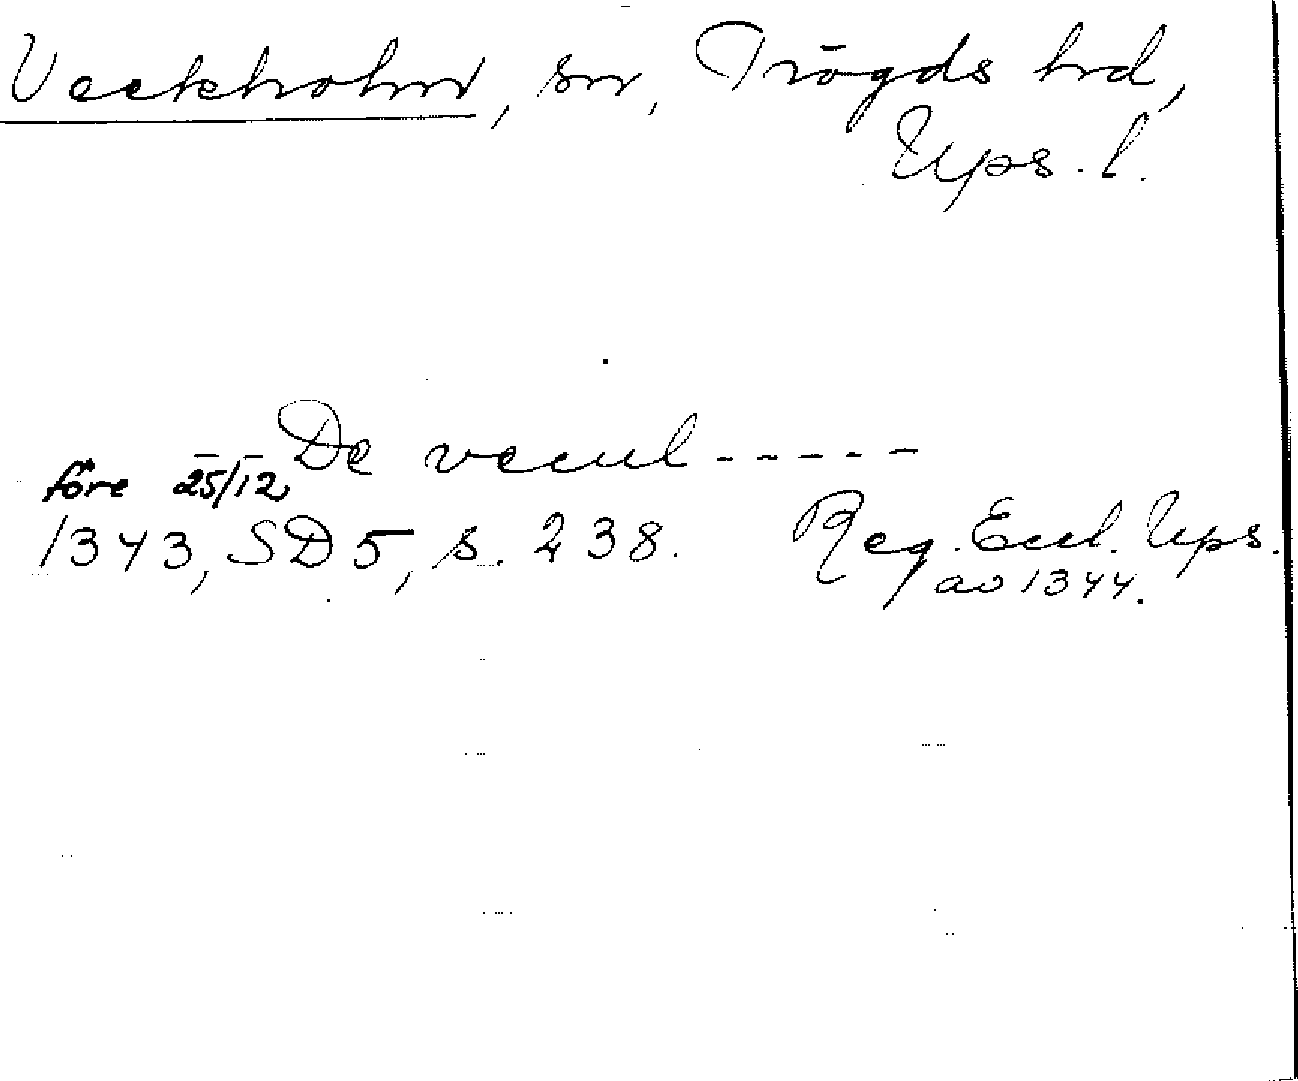 Veckholm, sn, Trögds hd,
Ups. l.
De vecul-----
före 25/12
1343, SD5, s. 238. Reg. Eccl. Ups.
av 1344.